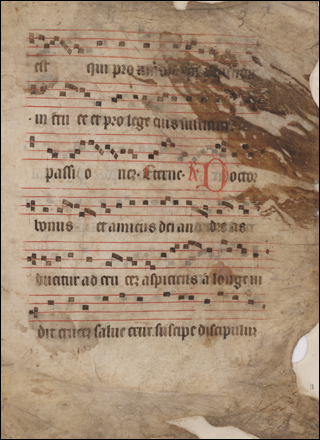 est qui pro
in cru ce et pro lege eius
passi o nez. Eterne. A. Doctor
bonus et amicus dei andreas
ducitur ad cru cez aspiciens a longe ui
dit crucez salue crux suscipe discipulum